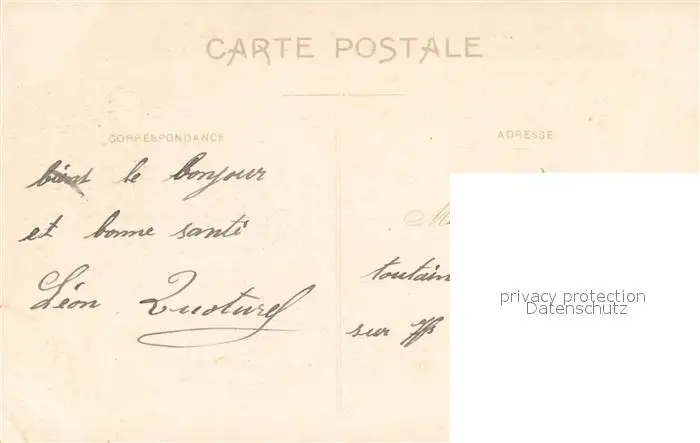 CARTE POSTALE
CORRESPONDANCE
ADRESSE
bient le bonjour
et bonne santé
Léon
M
toutain
sur
privacy protection
Datenschutz